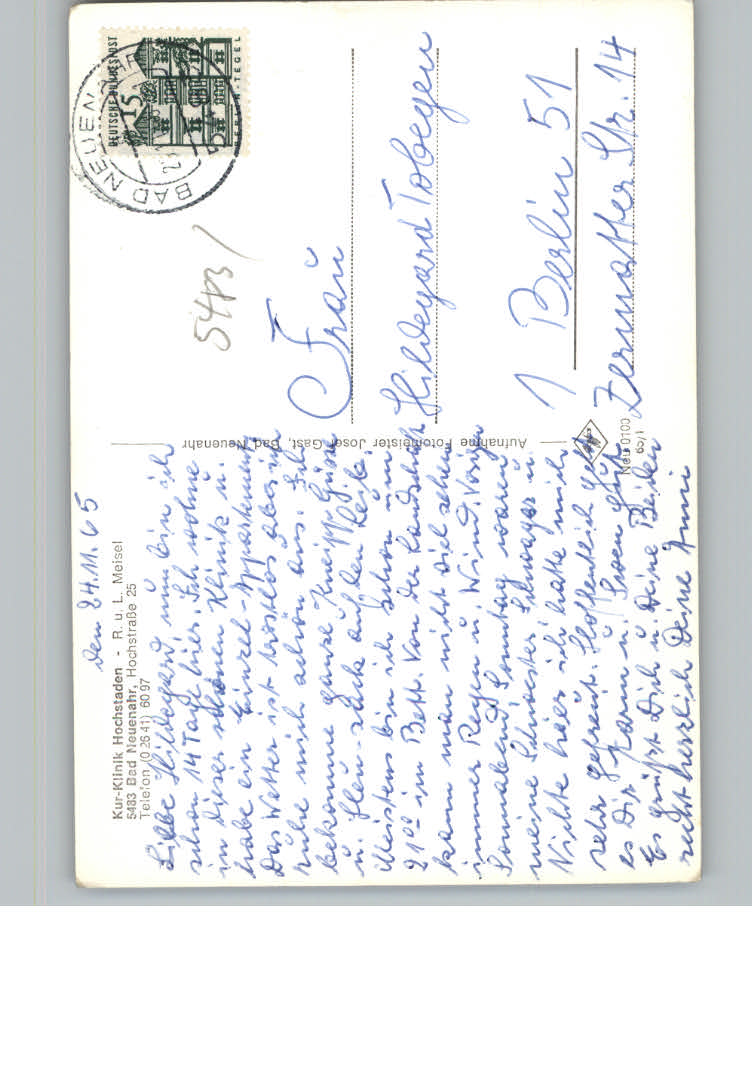 Kur-Klinik Hochstaden - R. u. L. Meisel
5483 Bad Neuenahr, Hochstraße 25
Telefon (0 26 41) 60 97
den 24.11.65
Liebe Hildegard, nun bin ich
schon 14 Tage hier. Ich wohne
in dieser schönen Klinik u.
habe ein Einzel-Appartement
Das Wetter ist trostlos aber ich
ruhe mich schön aus. Ich
bekomme ganze Kneipp-Güsse
u. Heu-säcke auf den Leib.
Meistens bin ich schon um
21°° im Bett. Von der Landschaft
kann man nicht viel sehen
immer Regen u. Wind. Vorigen
Sonnabend Sonntag waren
meine Schwester, Schwager u.
Nichte hier ich hatte mich
sehr gefreut. Hoffentlich geht
es Dir, Karin u. Sven gut.
Es grüßt Dich u. Deine Beiden
recht herzlich Deine Anni
Aufnahme Fotomeister Josef Gast, Bad Neuenahr
Neu 0100
65/1
DEUTSCHE BUNDESPOST
15
BERLIN TEGEL
BAD NEUENAHR
Frau
Hildegard Tobegen
1 Berlin 51
Zermatter Str. 14